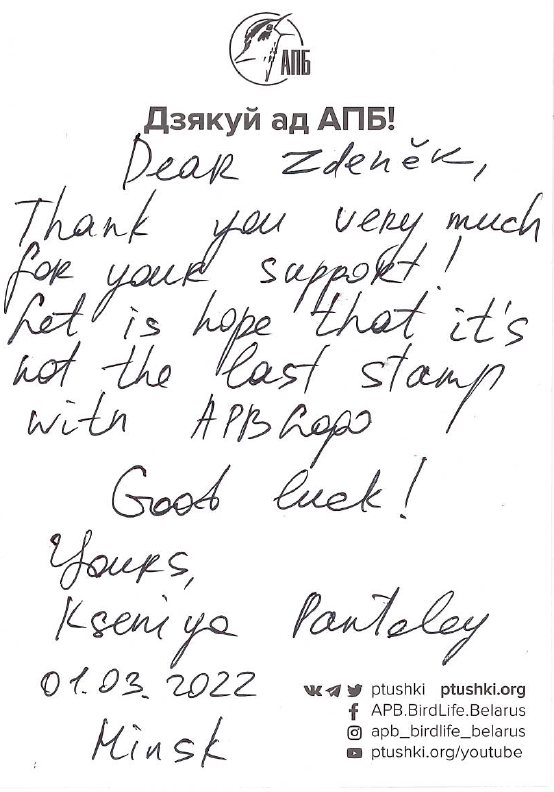 АПБ
Дзякуй ад АПБ!
Dear Zdeněk,
Thank you very much
for your support!
Let is hope that it's
not the last stamp
with APB Logo
Good luck!
Yours,
Kseniya Pantaley
01.03.2022
Minsk
ptushki ptushki.org
APB.BirdLife.Belarus
apb_birdlife_belarus
ptushki.org/youtube